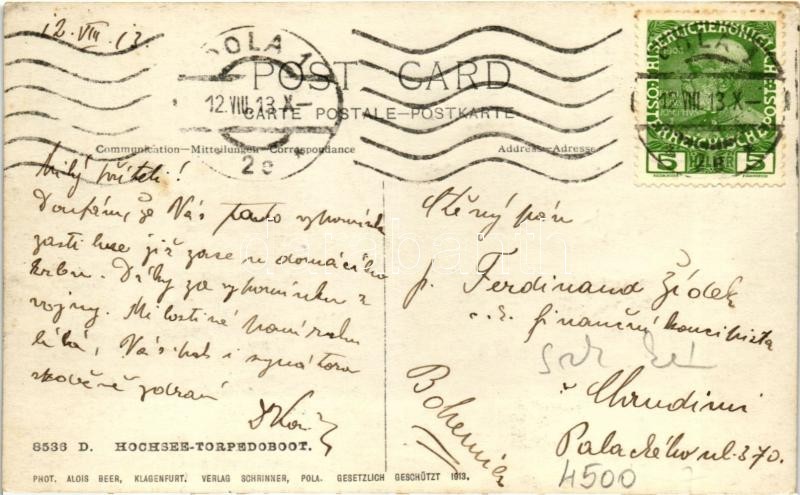 12. VIII. 13.
POLA 1
12.VIII.13.X—
2c
POLA 1
12.VIII.13.X—
5 HELLER 5
POST CARD
CARTE POSTALE—POSTKARTE
Communication—Mitteilungen—Correspondance
Address—Adresse
Milý příteli!
Doufám, že Vás tato vzpomínka
zastihne již zase u domácího
krbu. Díky za vzpomínku z
vojny. Milostiné paní ruku
líbá, Vás pak i synátora
srdečně zdraví
Ctěný pán
p. Ferdinand Žídek
c. k. finanční koncipista
v Chrudimi
Palackého ul. 370.
Bohemien
4500
8536 D. HOCHSEE-TORPEDOBOOT.
PHOT. ALOIS BEER, KLAGENFURT. VERLAG SCHRINNER, POLA. GESETZLICH GESCHÜTZT 1913.